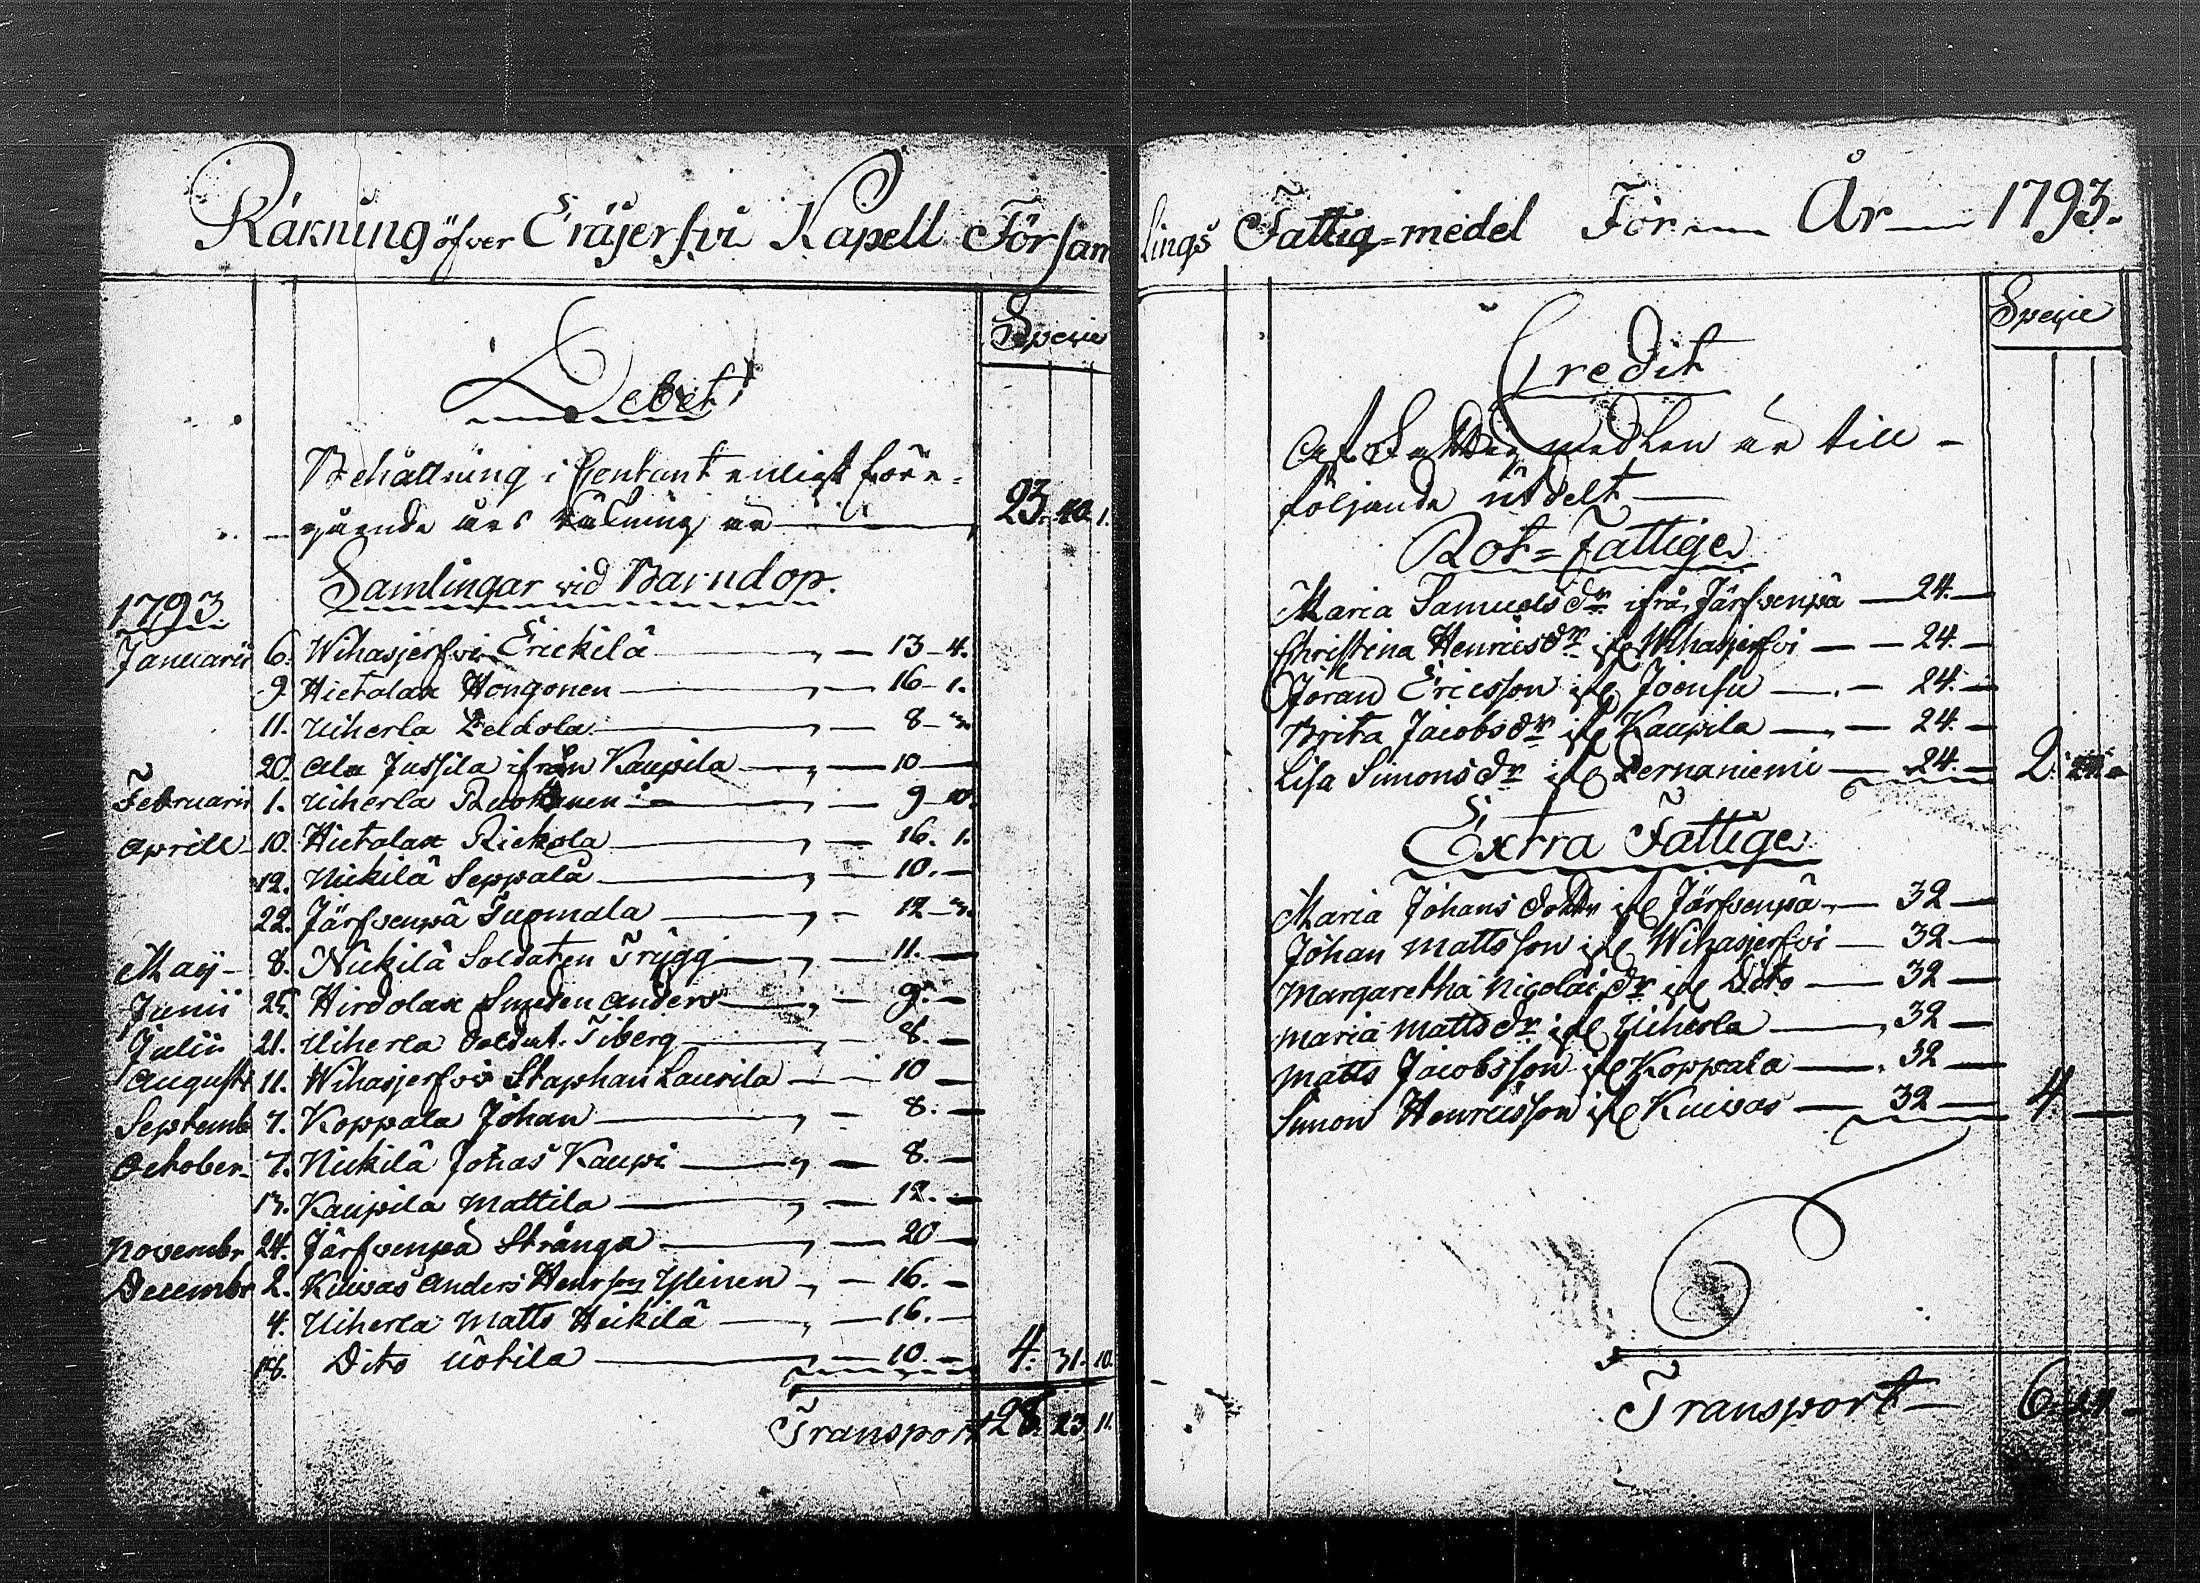 Räkning öfver Eräjerfvi Kapell Försam
lings Fattig-medel För År 1793.
Debet
Specie
Behållning i Contant enligt före-
gående års räkning är 23. 40. 1.
Samlingar vid Barndop.
1793.
Januarii 6. Wihasjerfvi Erickilä 13 - 4.
9. Hietalax Hongonen 16 - 1.
11. Uiherla Peldola 8 - 3.
20. Ala Jussila ifrån Kaupila 10
Februarii 1. Uiherla 9 - 10.
Aprill 10. Hietalax Rickola 16. 1.
12. Nickilä Seppälä 10.
22. Järfvenpä Tuomala 12 - 3.
Maij 8. Nickilä Soldaten Trygg 11.
Junii 25. Hirdolax Anders 9.
Julii 21. Uiherla Soldat. Tiberg 8.
Augusti 11. Wihasjerfvi Staphan Laurila 10
Septemb 7. Koppala Johan 8.
October 7. Nickilä Johas Kaupi 8.
13. Kaupila Mattila 12.
Novembr 24. Järfvenpä Stränga 20
Decembr 2. Kuivas Anders Henrson Ylinen 16.
4. Uiherla Matts Heikilä 16.
18. Dito Uotila 10. 4. 31. 10.
Transport 28. 23. 11.
Credit
Specie
Af Fattig medlen är till-
följande utdelt
Rot-Fattige
Maria Samuels dr ifrån Järfvenpä 24.
Christina Henricsdr ifr Wihasjerfvi 24.
Jöran Ericsson ifr Joensu 24.
Brita Jacobsdr ifr Kaupila 24.
Lisa Simonsdr ifr Pernaniemi 24. 2. 24.
Extra Fattige
Maria Johans dotter ifr Järfvenpä 32
Johan Mattsson ifr Wihasjerfvi 32
Margaretha Nicolai dr ifr Dito 32
Maria Mattsdr ifr Uiherla 32
Matts Jacobsson ifr Koppala 32
Simon Henricsson ifr Kuivas 32 4.
Transport 6. 24.